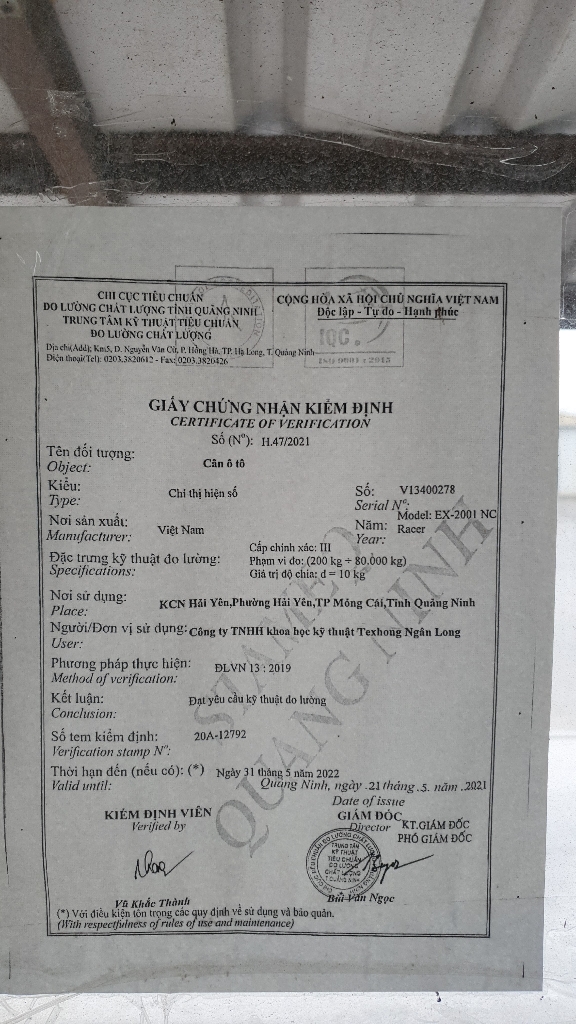 CHI CỤC TIÊU CHUẨN
ĐO LƯỜNG CHẤT LƯỢNG TỈNH QUẢNG NINH
TRUNG TÂM KỸ THUẬT TIÊU CHUẨN
ĐO LƯỜNG CHẤT LƯỢNG
Địa chỉ(Add); Km5, Đ. Nguyễn Văn Cừ, P. Hồng Hà, TP. Hạ Long, T. Quảng Ninh
Điện thoại(Tel): 0203.3820612 - Fax: 0203.3820426
CỘNG HÒA XÃ HỘI CHỦ NGHĨA VIỆT NAM
Độc lập - Tự do - Hạnh phúc
IQC.
ISO 9001 : 2015
GIẤY CHỨNG NHẬN KIỂM ĐỊNH
CERTIFICATE OF VERIFICATION
Số (Nº): H.47/2021
Tên đối tượng: Cân ô tô
Object:
Kiểu: Chỉ thị hiện số
Type:
Số: V13400278
Serial Nº:
Model: EX-2001 NC
Nơi sản xuất: Việt Nam
Manufacturer:
Năm: Racer
Year:
Đặc trưng kỹ thuật đo lường:
Specifications:
Cấp chính xác: III
Phạm vi đo: (200 kg ÷ 80.000 kg)
Giá trị độ chia: d = 10 kg
Nơi sử dụng:
Place: KCN Hải Yên,Phường Hải Yên,TP Móng Cái,Tỉnh Quảng Ninh
Người/Đơn vị sử dụng: Công ty TNHH khoa học kỹ thuật Texhong Ngân Long
User:
Phương pháp thực hiện: ĐLVN 13 : 2019
Method of verification:
Kết luận: Đạt yêu cầu kỹ thuật đo lường
Conclusion:
Số tem kiểm định: 20A-12792
Verification stamp Nº:
Thời hạn đến (nếu có): (*) Ngày 31 tháng 5 năm 2022
Valid until:
Quảng Ninh, ngày .21 tháng .5. năm .2021
Date of issue
KIỂM ĐỊNH VIÊN
Verified by
GIÁM ĐỐC
Director
KT.GIÁM ĐỐC
PHÓ GIÁM ĐỐC
TRUNG TÂM
KỸ THUẬT
TIÊU CHUẨN
ĐO LƯỜNG
CHẤT LƯỢNG
T. QUẢNG NINH
Vũ Khắc Thành
Bùi Văn Ngọc
(*) Với điều kiện tôn trọng các quy định về sử dụng và bảo quản.
(With respectfulness of rules of use and maintenance)
STAMEQ
QUANG NINH